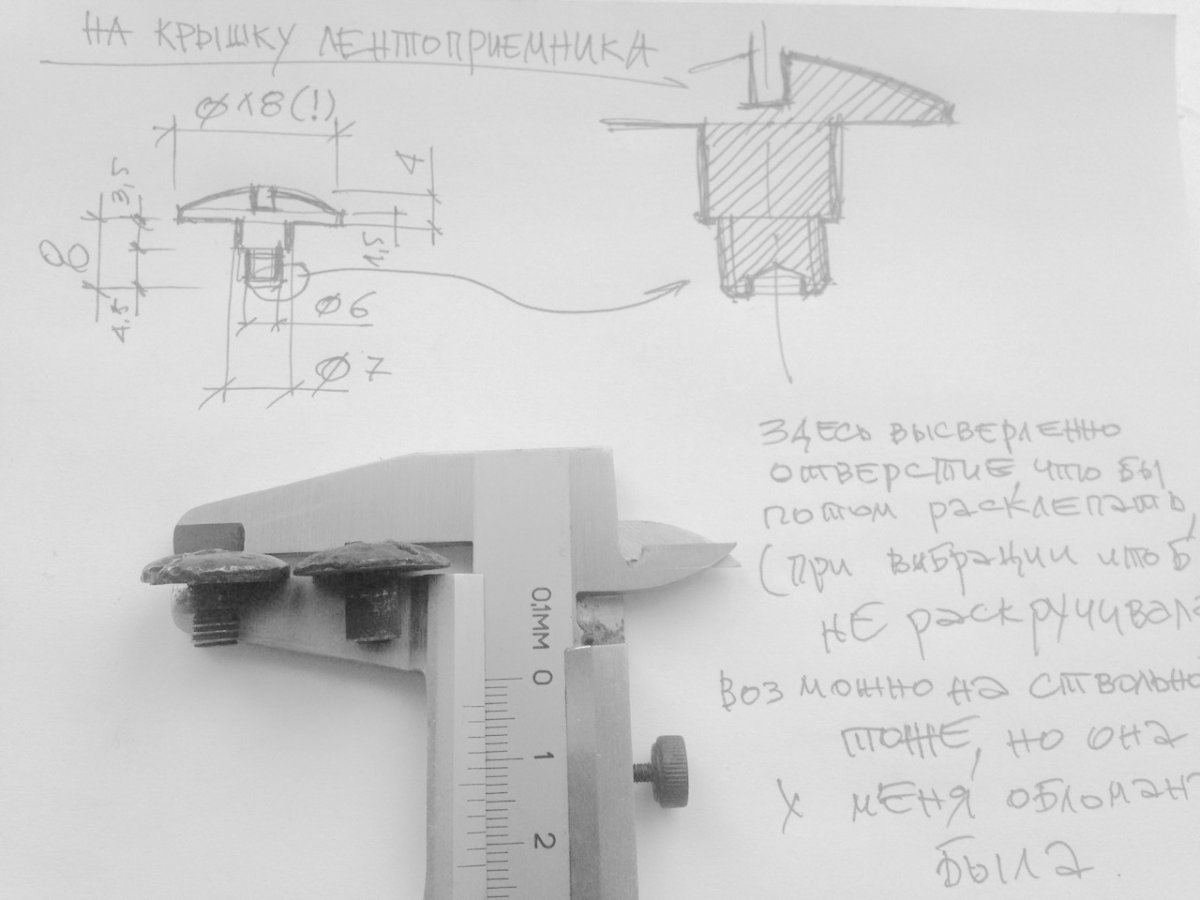 НА КРЫШКУ ЛЕНТОПРИЕМНИКА
ø18(!)
3,5
4
8
1,5
4.5
ø6
ø7
ЗДЕСЬ ВЫСВЕРЛЕННО
ОТВЕРСТИЕ, ЧТО БЫ
ПОТОМ РАСКЛЕПАТЬ,
(ПРИ ВИБРАЦИИ ЧТО Б
НЕ РАСКРУЧИВАЛ
ВОЗМОЖНО НА СТВОЛЬНО
ТОЖЕ, НО ОНА
У МЕНЯ ОБЛОМАН
БЫЛА.
0,1ММ
0
1
2